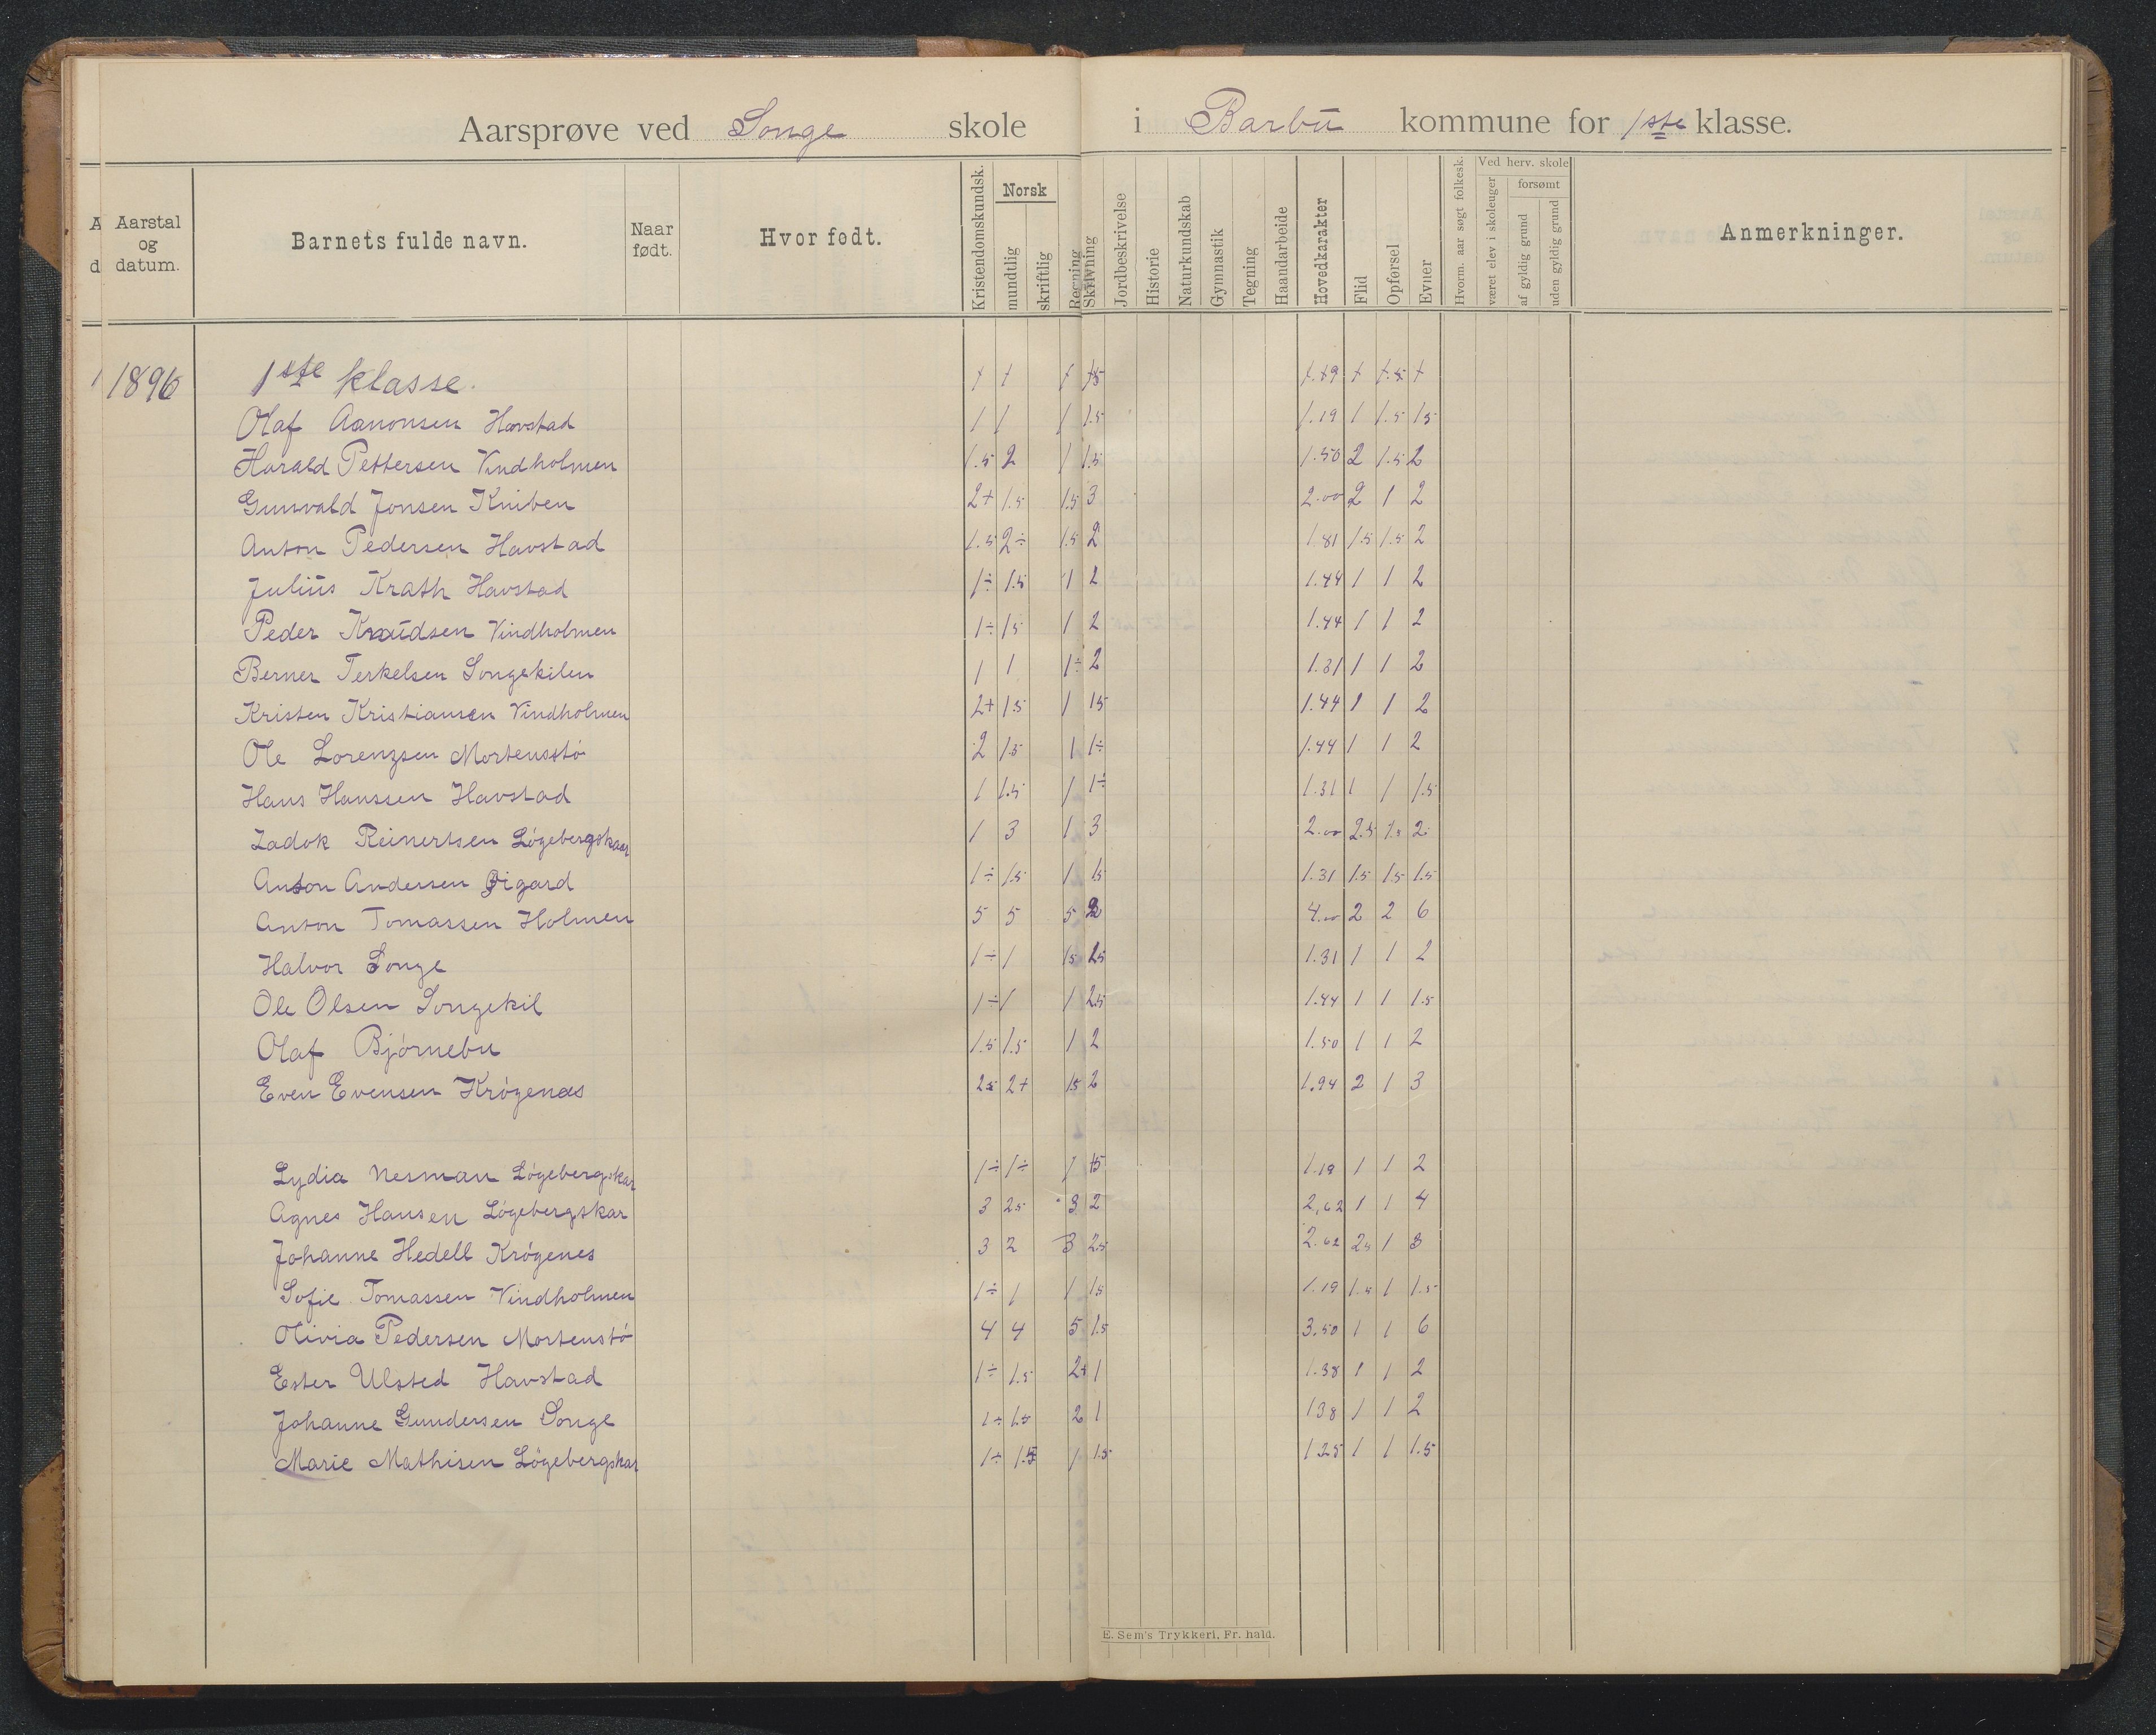 Aarsprøve ved Songe skole i Barbu kommune for 1ste klasse.
A
d
Aarstal og datum.
Barnets fulde navn.
Naar født.
Hvor født.
Kristendomskundsk.
Norsk
mundtlig
skriftlig
Regning
Skrivning
Jordbeskrivelse
Historie
Naturkundskab
Gymnastik
Tegning
Haandarbeide
Hovedkarakter
Flid
Opførsel
Evner
Hvorm. aar søgt folkesk.
Ved herv. skole
været elev i skoleuger
forsømt
af gyldig grund
uden gyldig grund
Anmerkninger.
1896 1ste klasse.
Olaf Aanonsen Havstad 1 1 1 1.5 1.19 1 1.5 1.5
Harald Pettersen Vindholmen 1.5 2 1 1.5 1.50 2 1.5 2
Gunvald Jonsen Kniben 2+ 1.5 1.5 3 2.00 2 1 2
Anton Pedersen Havstad 1.5 2÷ 1.5 2 1.81 1.5 1.5 2
Julius Krath Havstad 1÷ 1.5 1 2 1.44 1 1 2
Peder Knudsen Vindholmen 1÷ 1.5 1 2 1.44 1 1 2
Berner Terkelsen Songekilen 1 1 1÷ 2 1.31 1 1 2
Kristen Kristiansen Vindholmen 2+ 1.5 1 1.5 1.44 1 1 2
Ole Lorenzsen Mortensstø 2 1.5 1 1÷ 1.44 1 1 2
Hans Hanssen Havstad 1 1.5 1 1÷ 1.31 1 1 1.5
Zadok Reinertsen Løgebergskaar 1 3 1 3 2.00 2.5 1.5 2
Anton Andersen Øigard 1÷ 1.5 1 1.5 1.31 1.5 1.5 1.5
Anton Tomassen Holmen 5 5 5 4.00 2 2 6
Halvor Songe 1÷ 1 1.5 1.31 1 1 2
Ole Olsen Songekil 1÷ 1 1 2.5 1.44 1 1 1.5
Olaf Bjørnebu 1.5 1.5 1 2 1.50 1 1 2
Even Evensen Krøgenæs 2.5 2+ 1.5 2 1.94 2 1 3
Lydia Nesman Løgebergskar 1÷ 1÷ 1 1.5 1.19 1 1 2
Agnes Hansen Løgebergskar 3 2.5 3 2 2,62 1 1 4
Johanne Hedell Krøgenes 3 2 3 2.5 2.62 2.5 1 3
Sofie Tomassen Vindholmen 1÷ 1 1 1.5 1.19 1.5 1 1.5
Olivia Pedersen Mortenstø 4 4 5 1.5 3.50 1 1 6
Ester Ulsted Havstad 1÷ 1.5 2+ 1 1.38 1 1 2
Johanne Gundersen Songe 1÷ 1.5 2 1 1.38 1 1 2
Marie Mathisen Løgebergskar 1÷ 1.5 1 1.5 1.25 1 1 1.5
E. Sem's Trykkeri, Fr. hald.